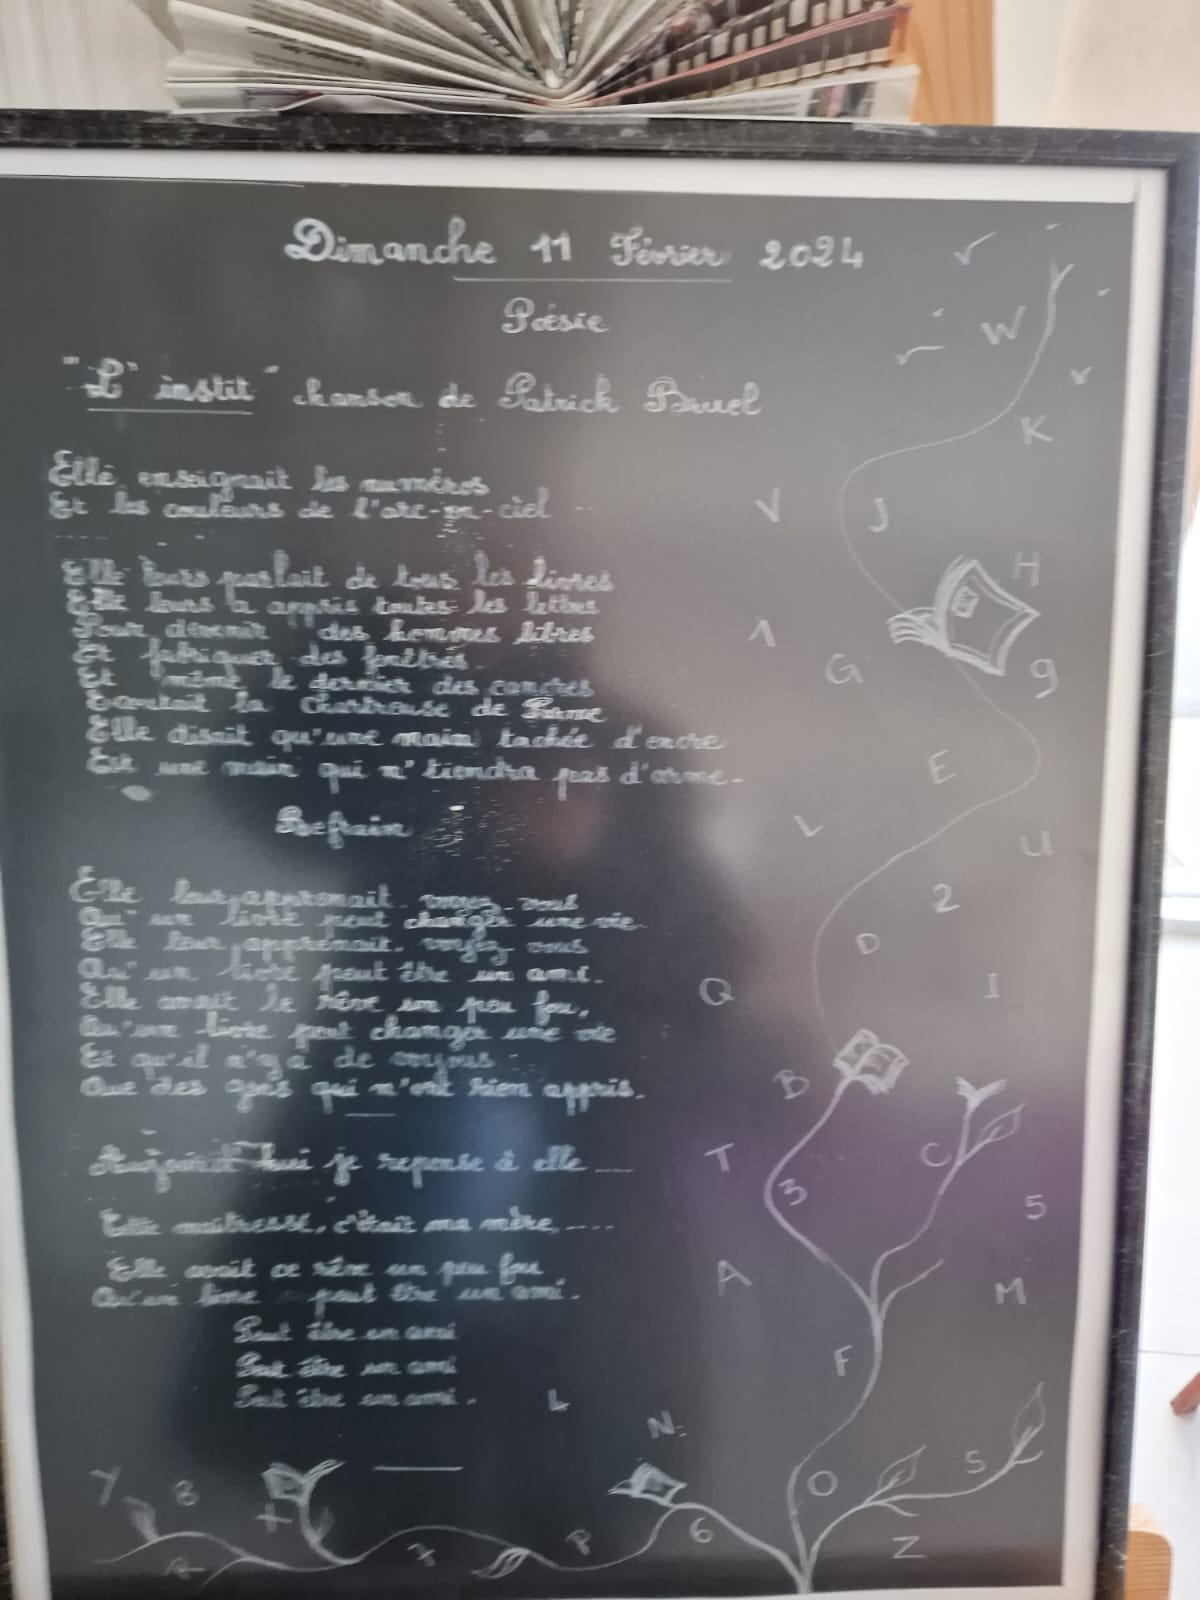 Dimanche 11 Février 2024
Poésie
"L'instit" chanson de Patrick Bruel
Elle enseignait les numéros
Et les couleurs de l'arc-en-ciel ...
Elle leurs parlait de tous les livres
Elle leurs a appris toutes les lettres
Pour devenir des hommes libres
Et fabriquer des fenêtres
Et même le dernier des cancres
Ecoutait la Chartreuse de Parme
Elle disait qu'une main tachée d'encre
Est une main qui n'tiendra pas d'arme.
Refrain
Elle leur apprenait, voyez-vous
Qu'un livre peut changer une vie.
Elle leur apprenait, voyez vous
Qu'un livre peut être un ami.
Elle avait le rêve un peu fou,
Qu'un livre peut changer une vie
Et qu'il n'y a de voyous
Que des gens qui n'ont rien appris.
Aujourd'hui je repense à elle ....
Cette maîtresse, c'était ma mère, ....
Elle avait ce rêve un peu fou
Qu'un livre peut être un ami.
Peut être un ami
Peut être un ami
Peut être un ami.
W
K
V J
H
1
G 9
E
L U
2
D
Q I
B
T C
3 5
A M
F
L
N
Y 8 O S
X
7 P 6 Z